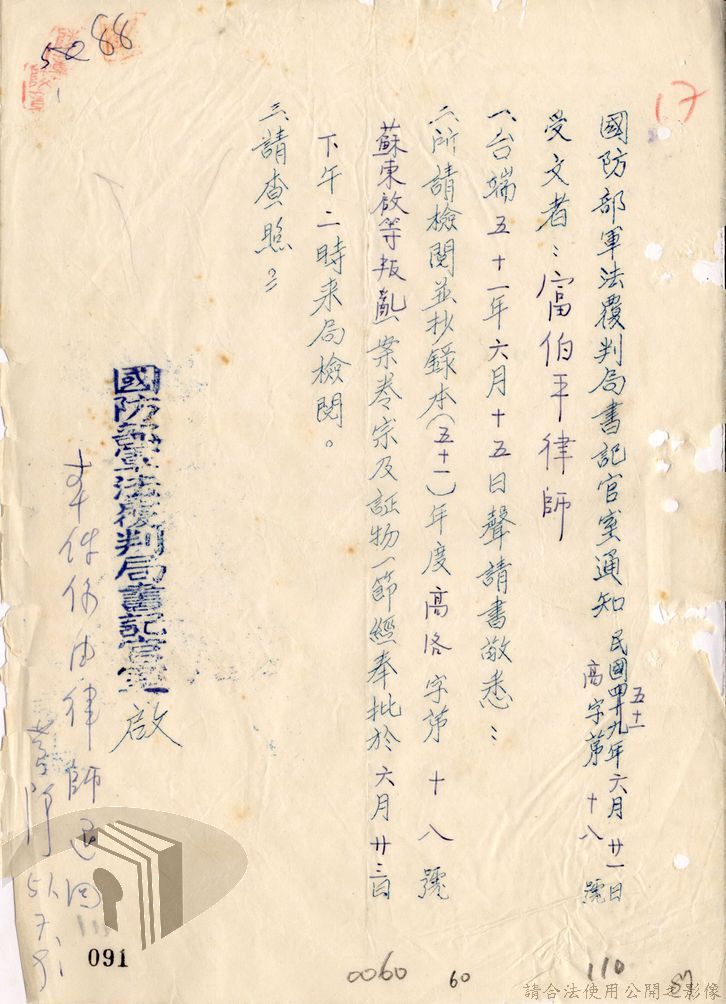 17
國防部軍法覆判局書記官室通知 民國四十九年六月廿一日
五十一
高字第十八號
受文者：富伯平律師
一、台端五十一年六月十五日聲請書敬悉：
二、所請檢閱並抄錄本(五十一)年度高洛字第十八號
蘇東啟等叛亂一案卷宗及証物一節經奉批於六月廿三日
下午二時來局檢閱。
三、請查照。
國防部軍法覆判局書記官室 啟
本件係由律師退回
5288
091
0060
60
110
請合法使用公開之影像